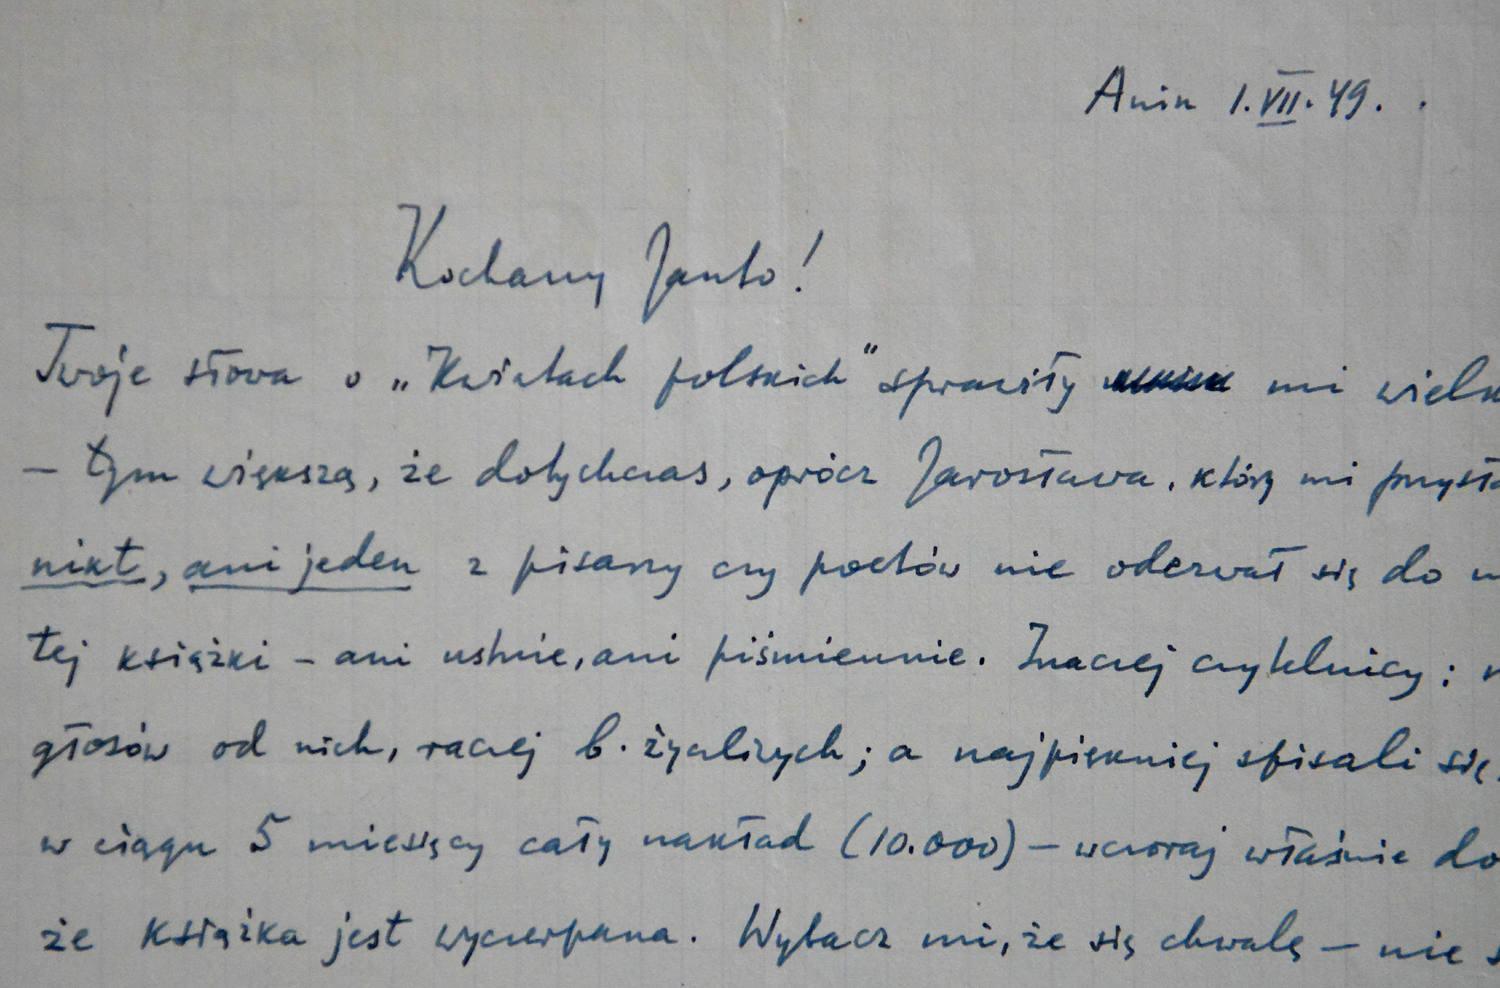 Anin 1.VII.49.
Kochany Janto!
Twoje słowa o „Kwiatach polskich” sprawiły mi wielk
– tym większą, że dotychczas, oprócz Jarosława, który mi przysła
nikt, ani jeden z pisarzy czy poetów nie odezwał się do
tej książki – ani ustnie, ani piśmiennie. Inaczej czytelnicy:
głosów od nich, raczej b. życzliwych; a najpiękniej spisali się,
w ciągu 5 miesięcy cały nakład (10.000) – wczoraj właśnie do
że książka jest wyczerpana. Wybacz mi, że się chwalę – nie